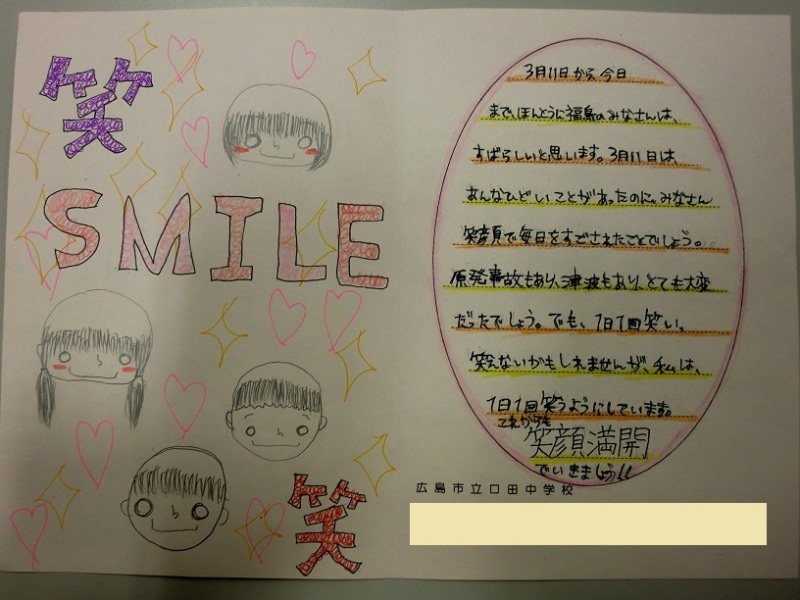 笑
SMILE
笑
3月11日から今日
まで、ほんとうに福島のみなさんは、
すばらしいと思います。3月11日は、
あんなひどいことがあったのに、みなさん
笑顔で毎日をすごされたことでしょう。
原発事故もあり、津波もあり、とても大変
だったでしょう。でも、1日1回笑い、
笑えないかもしれませんが、私は、
1日1回笑うようにしています。
これからも
笑顔満開
でいきましょう!!
広島市立口田中学校